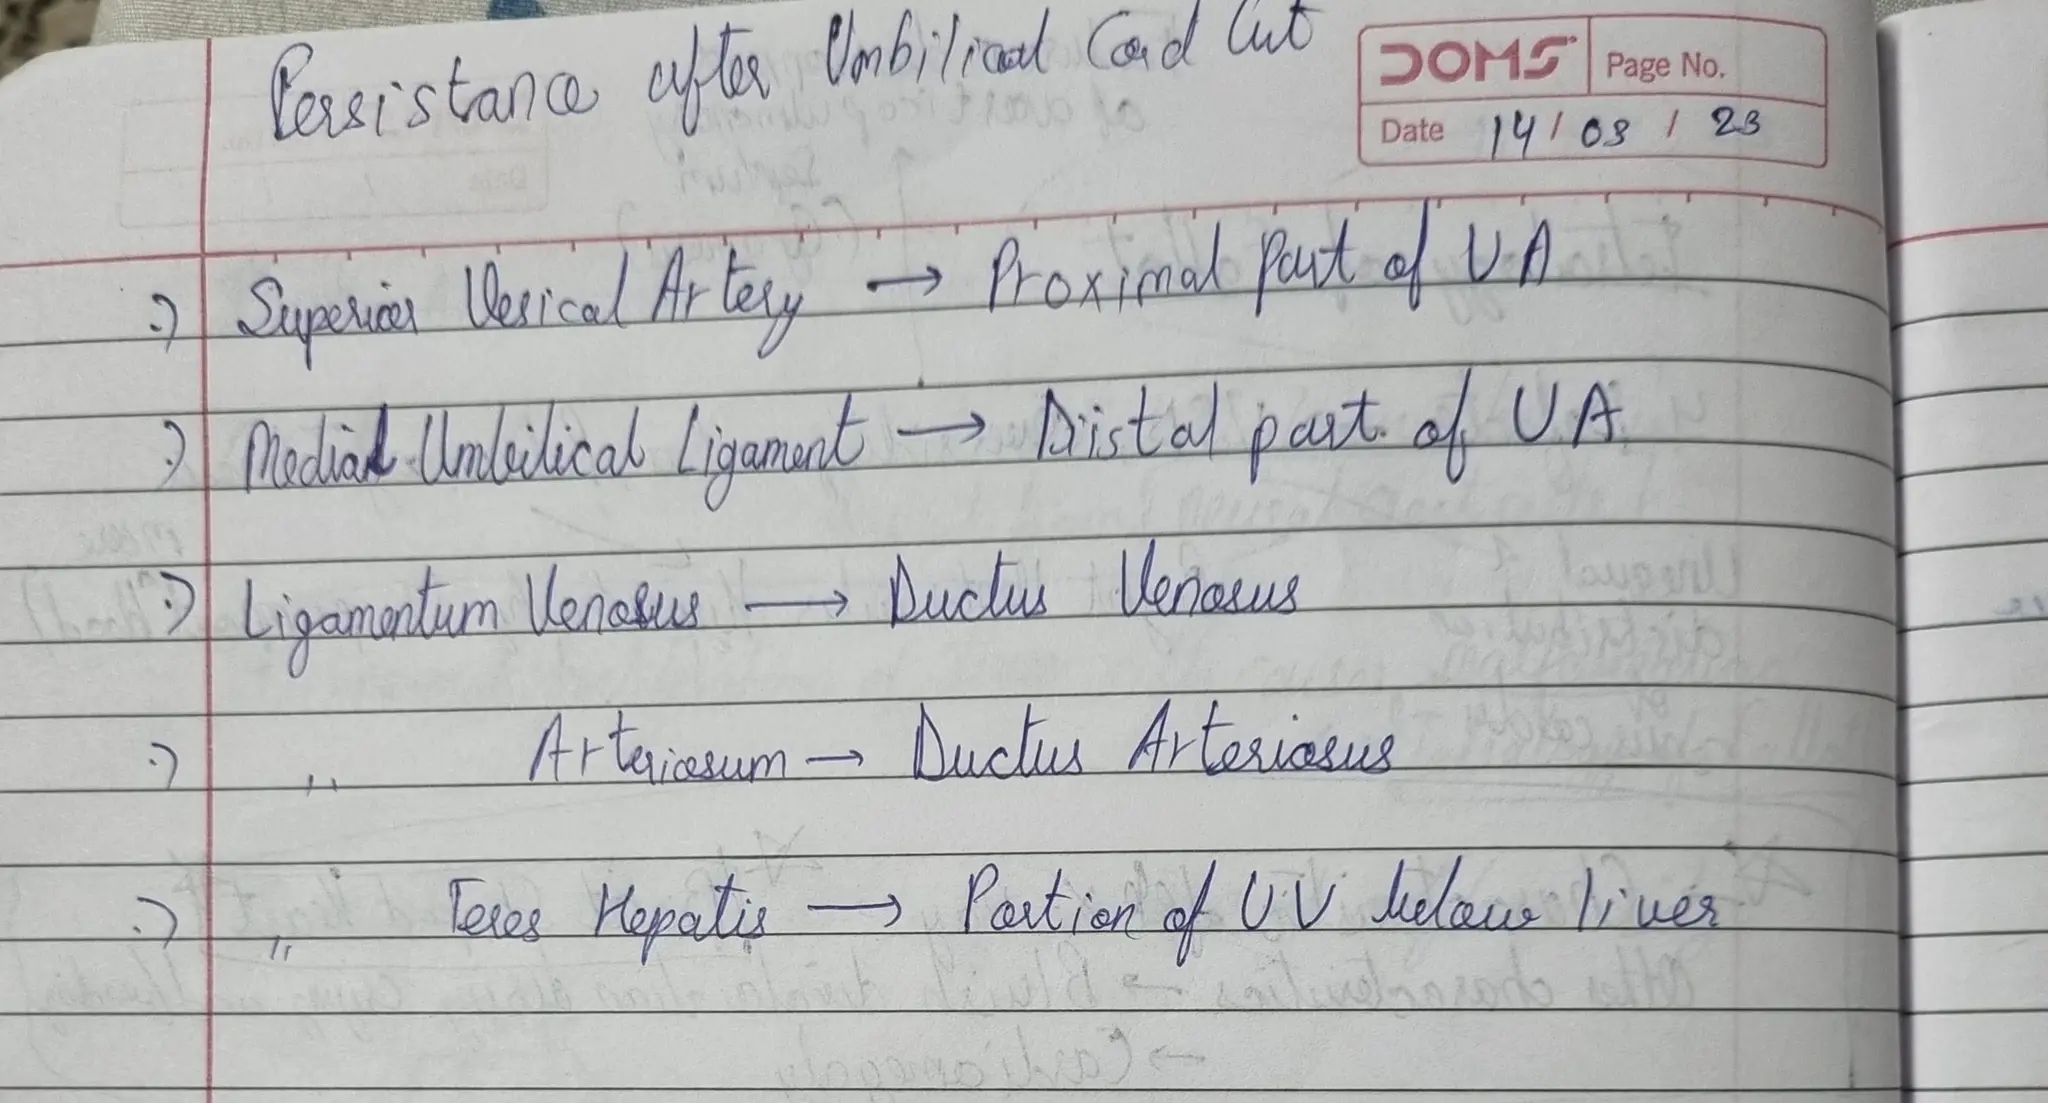 Persistance after Umbilical Cord Cut
DOMS Page No.
Date 14 / 03 / 23
:) Superior Vesical Artery → Proximal Part of UA
:) Medial Umbilical Ligament → Distal part of UA
:) Ligamentum Venosus → Ductus Venosus
:) ,, Arteriosum → Ductus Arteriosus
:) ,, Teres Hepatis → Portion of UV below liver